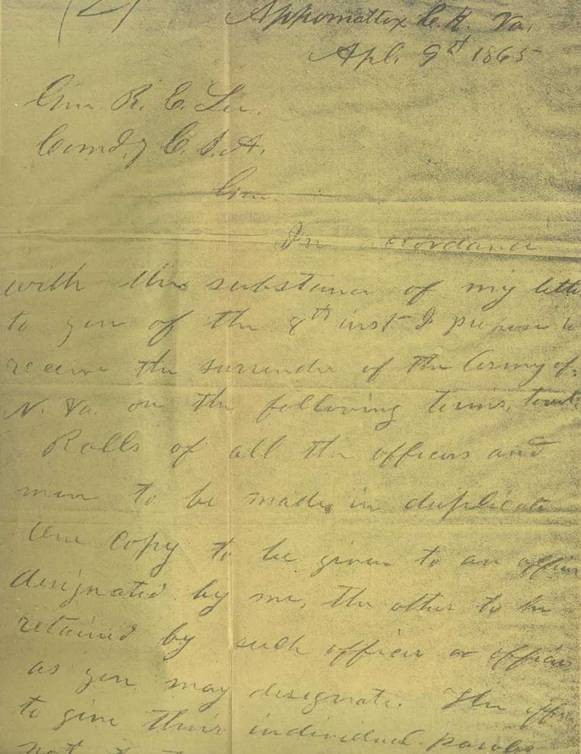 (2)
Appomattox C. H. Va.
Apl. 9th 1865
Gen. R. E. Lee.
Comd.g C. S. A.
Gen.
In accordance
with the substance of my letter
to you of the 8th inst I propose to
receive the surrender of the Army of
N. Va. on the following terms, towit
Rolls of all the officers and
men to be made in duplicate
One copy to be given to an officer
designated by me, the other to be
retained by such officer or officers
as you may designate. The off
to give their individual paroles
not to